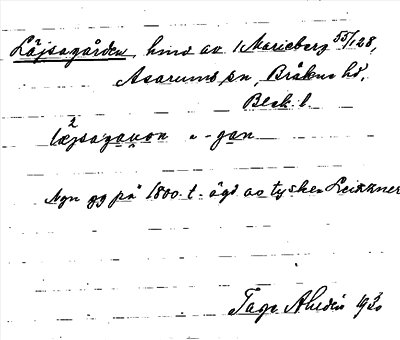 Läjsagården, hmd av 1 Marieberg 55/128,
Asarums sn, Bräkne hd,
Blek. l.
2
læjsagauon " -gan
Ngn gg på 1800-t. ägd av tysken Leixner
Tage Ahldén 1930